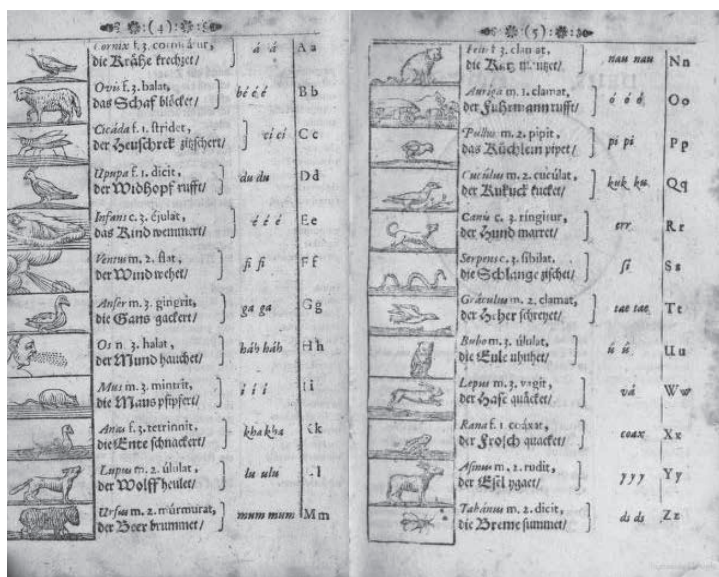 :(4):
Cornix f. 3. cornicatur,
die Krähe krechzet/
á á
A a
Ovis f. 3. balat,
das Schaf blöcket/
bé é é
B b
Cicáda f. 1. stridet,
der Heuschrek zitzschert/
ci ci
C c
Upupa f. 1. dicit,
der Widhopf rufft/
du du
D d
Infans c. 3. éjulat,
das Kind wemmert/
é é é
E e
Ventus m. 2. flat,
der Wind wehet/
fi fi
F f
Anser m. 3. gingrit,
die Gans gackert/
ga ga
G g
Os n. 3. halat,
der Mund hauchet/
háh háh
H h
Mus m. 3. mintrit,
die Maus pfipfert/
í í í
I i
Anas f. 3. tetrinnit,
die Ente schnackert/
kha kha
k
Lupus m. 2. úlulat,
der Wolff heulet/
lu ulu
l
Ursus m. 2. múrmurat,
der Beer brummet/
mum mum
M m
:(5):
Felis f. 3. clamat,
die Katz mauzet/
nau nau
N n
Auriga m. 1. clamat,
der Fuhrmann rufft/
ó ó ó
O o
Pullus m. 2. pipit,
das Küchlein pipet/
pi pi
P p
Cucúlus m. 2. cucúlat,
der Kukuck kucket/
kuk ku
Q q
Canis c. 3. ringitur,
der Hund marret/
err
R r
Serpens c. 3. sibilat,
die Schlange zischet/
si
S s
Gráculus m. 2. clamat,
der Heher schreyet/
tae tae
T t
Bubo m. 3. úlulat,
die Eule uhuhet/
ú ú
U u
Lepus m. 3. vagit,
der Hase quäcket/
vá
W w
Rana f. 1 coáxat,
der Frosch quacket/
coax
X x
Asinus m. 2. rudit,
der Esel ygaet/
y y y
Y y
Tabánus m. 2. dicit,
die Breme summet/
ds ds
Z z